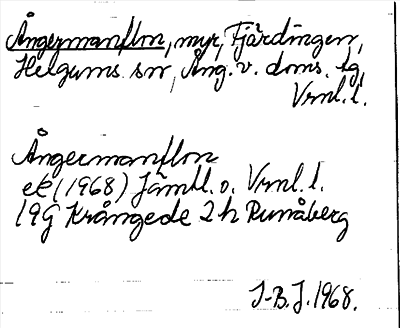 Ångermanflon, myr, Fjärdingen,
Helgums sn, Ång. v. doms. tg,
Vrnl. l.
Ångermanflon
ek (1968) Jämtl. o. Vrnl. l.
19G Krångede 2h Runåberg
J-B.J. 1968.